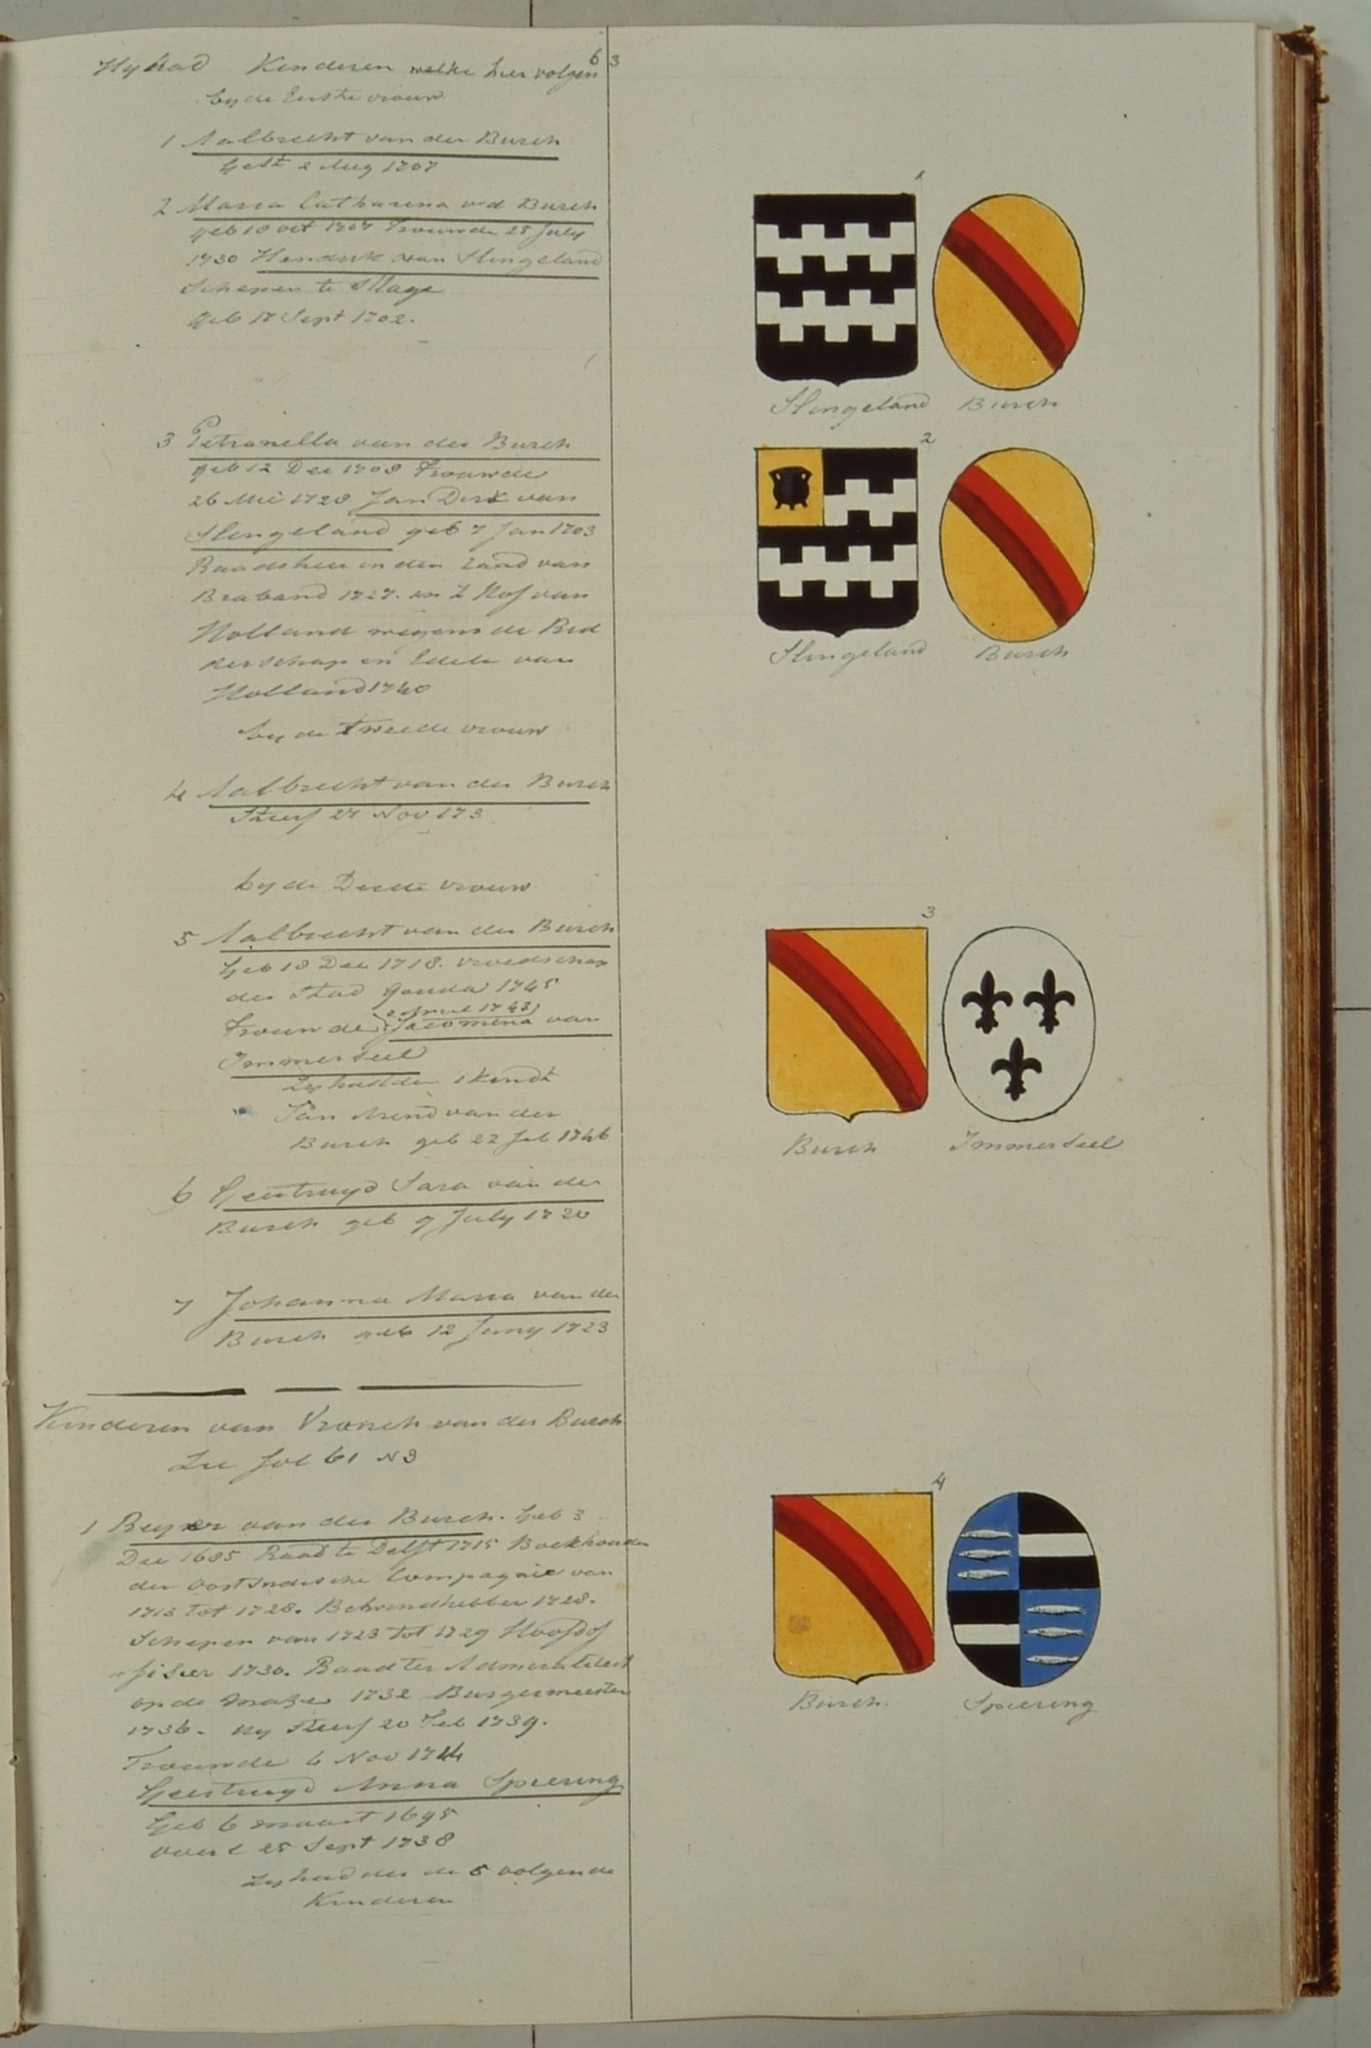 63
Hy had Kinderen welke hier volgen
by de Eerste vrouw
1 Aalbrecht van der Burch
Gest 2 Aug 1707
2 Maria Catharina vd Burch
geb 10 oct 1707 Trouwde 25 July
1730 Hendrik van Slingeland
Schepen te s'Hage
Geb 17 Sept 1702.
3 Petronella van der Burch
geb 12 Dec 1708 Trouwde
26 Mei 1728 Jan Dirk van
Slingeland geb 7 Jan 1703
Raadsheer in den raad van
Braband 1727. in 't Hof van
Holland wegens de Rid
derschap en Edele van
Holland 1740
by de tweede vrouw
4 Aalbrecht van der Burch
Stierf 27 Nov 173
by de Derde vrouw
5 Aalbrecht van der Burch
Geb 18 Dec 1718. vroedschap
der Stad Gouda 1745
2 April 1743
Trouwde Jacomina van
Immerseel
Zy hadden 1 Kindt
Jan Arend van der
Burch geb 22 feb 1746
6 Geertruyd Sara van der
Burch geb 9 July 1720
7 Johanna Maria van der
Burch geb 12 Juny 1723
Kinderen van Vranck van der Burch
Zie fol 61 N3
1 Reyer van der Burch. Geb 3
Dec 1685 Raad te Delft 1715 Boekhouder
der Oostindische Compagnie van
1713 tot 1728. Bewindhebber 1728.
Schepen van 1723 tot 1729 Hoofdof
fisier 1730. Raad ter Admiraliteit
op de Maze 1732 Burgermeester
1736. Hy stierf 20 Feb 1739.
Trouwde 6 Nov 1714
Geertruyd Anna Spiering
Geb 6 maart 1695
overl 25 Sept 1738
Zy hadden de 5 volgende
Kinderen
1
Slingeland Burch
2
Slingeland Burch
3
Burch Immerseel
4
Burch. Spiering